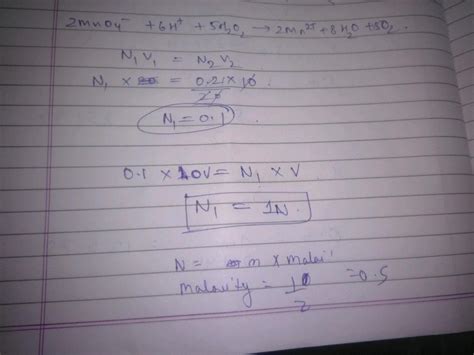 2MnO4⁻ + 6H⁺ + 5H2O2 → 2Mn²⁺ + 8H2O + 5O2
N1 V1 = N2 V2
N1 × = 0.21 × 10
N1 = 0.1
0.1 × 10V = N1 × V
N1 = 1N
N = n ×
Malarity = 10 = 0.5
2